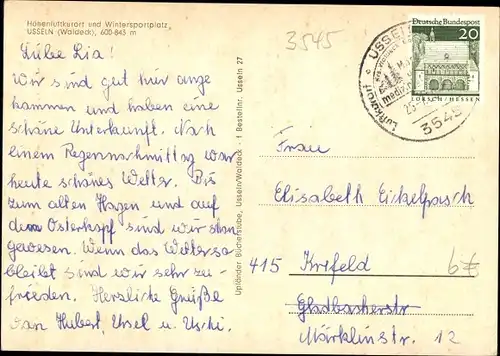 Höhenluftkurort und Wintersportplatz
USSELN (Waldeck), 600-843 m
Liebe Lia!
Wir sind gut hier ange
kommen und haben eine
schöne Unterkunft. Nach
einem Regennachmittag war
heute schönes Wetter. Bis
zum alten Hagen und auf
dem Osterkopf sind wir schon
gewesen. Wenn das Wetter so
bleibt sind wir sehr zu-
frieden. Herzliche Grüße
von Hubert, Ursel u. Uschi.
Upländer Bücherstube, Usseln/Waldeck - 1 Bestellnr. Usseln 27
3545
USSELN
Luftkurort
3545
Deutsche Bundespost
20
LORSCH/HESSEN
Frau
Elisabeth Eickelpasch
415 Krefeld
Gladbacherstr
Märklinstr. 12